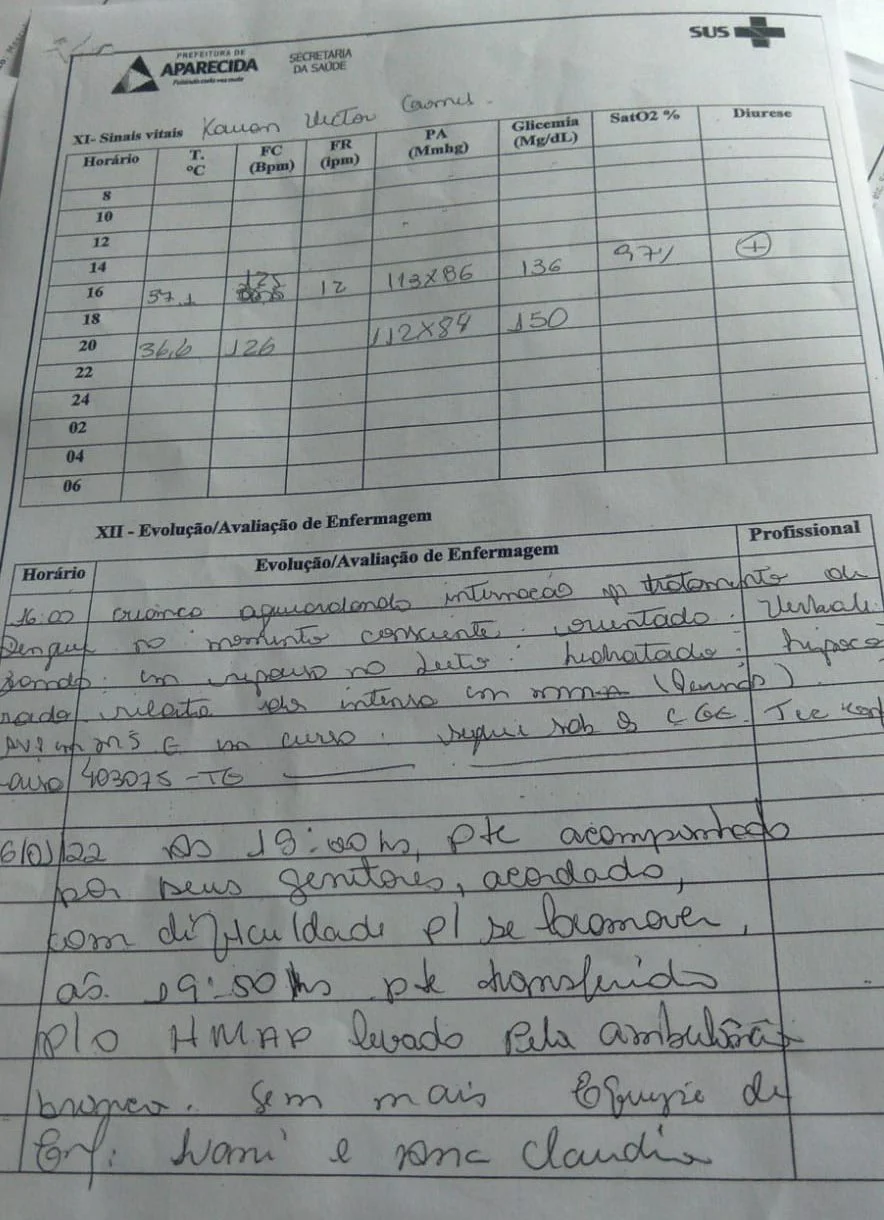 SUS
PREFEITURA DE
APARECIDA
SECRETARIA
DA SAÚDE
XI- Sinais vitais Kauan Victor
Horário T. ºC FC (Bpm) FR (ipm) PA (Mmhg) Glicemia (Mg/dL) SatO2 % Diurese
8
10
12
14
16 37.1 125 12 113X86 136 97% +
18
20 36,6 126 112X84 150
22
24
02
04
06
XII - Evolução/Avaliação de Enfermagem
Horário Evolução/Avaliação de Enfermagem Profissional
16:00 criança aguardando internação p/ tratamento de
Dengue no momento consciente. orientado. Verbali
zando. em repouso no leito. hidratado. hipoco
rada relata dor intensa em
em curso. segue sob os C GE. Tec
403075 -TE
6/01/22 As 19:00hs, pte acompanhado
por seus genitores, acordado,
com dificuldade p/ se locomover,
as 19:50hs pte transferido
p/o HMAP levado pela ambulância
branca. Sem mais Equipe de
Enf: Ivani e Ana Claudia